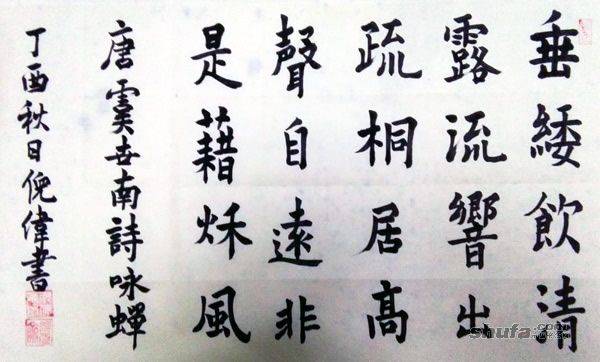 垂緌飲清
露流響出
疏桐居高
聲自遠非
是藉秋風
唐虞世南詩咏蟬
丁酉秋日倪偉書
shufa.com